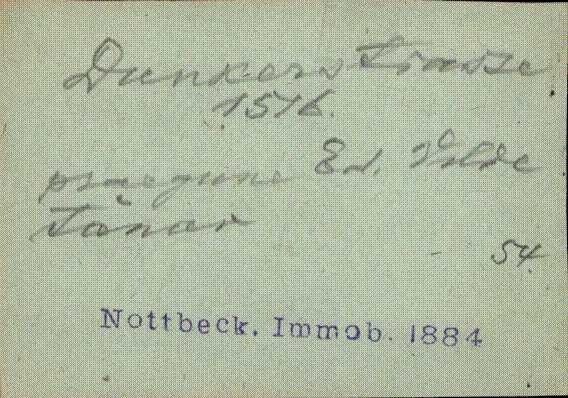 Dunkers Strasse
1516.
praegune Ed. Vilde
Tänav
54.
Nottbeck. Immob. 1884